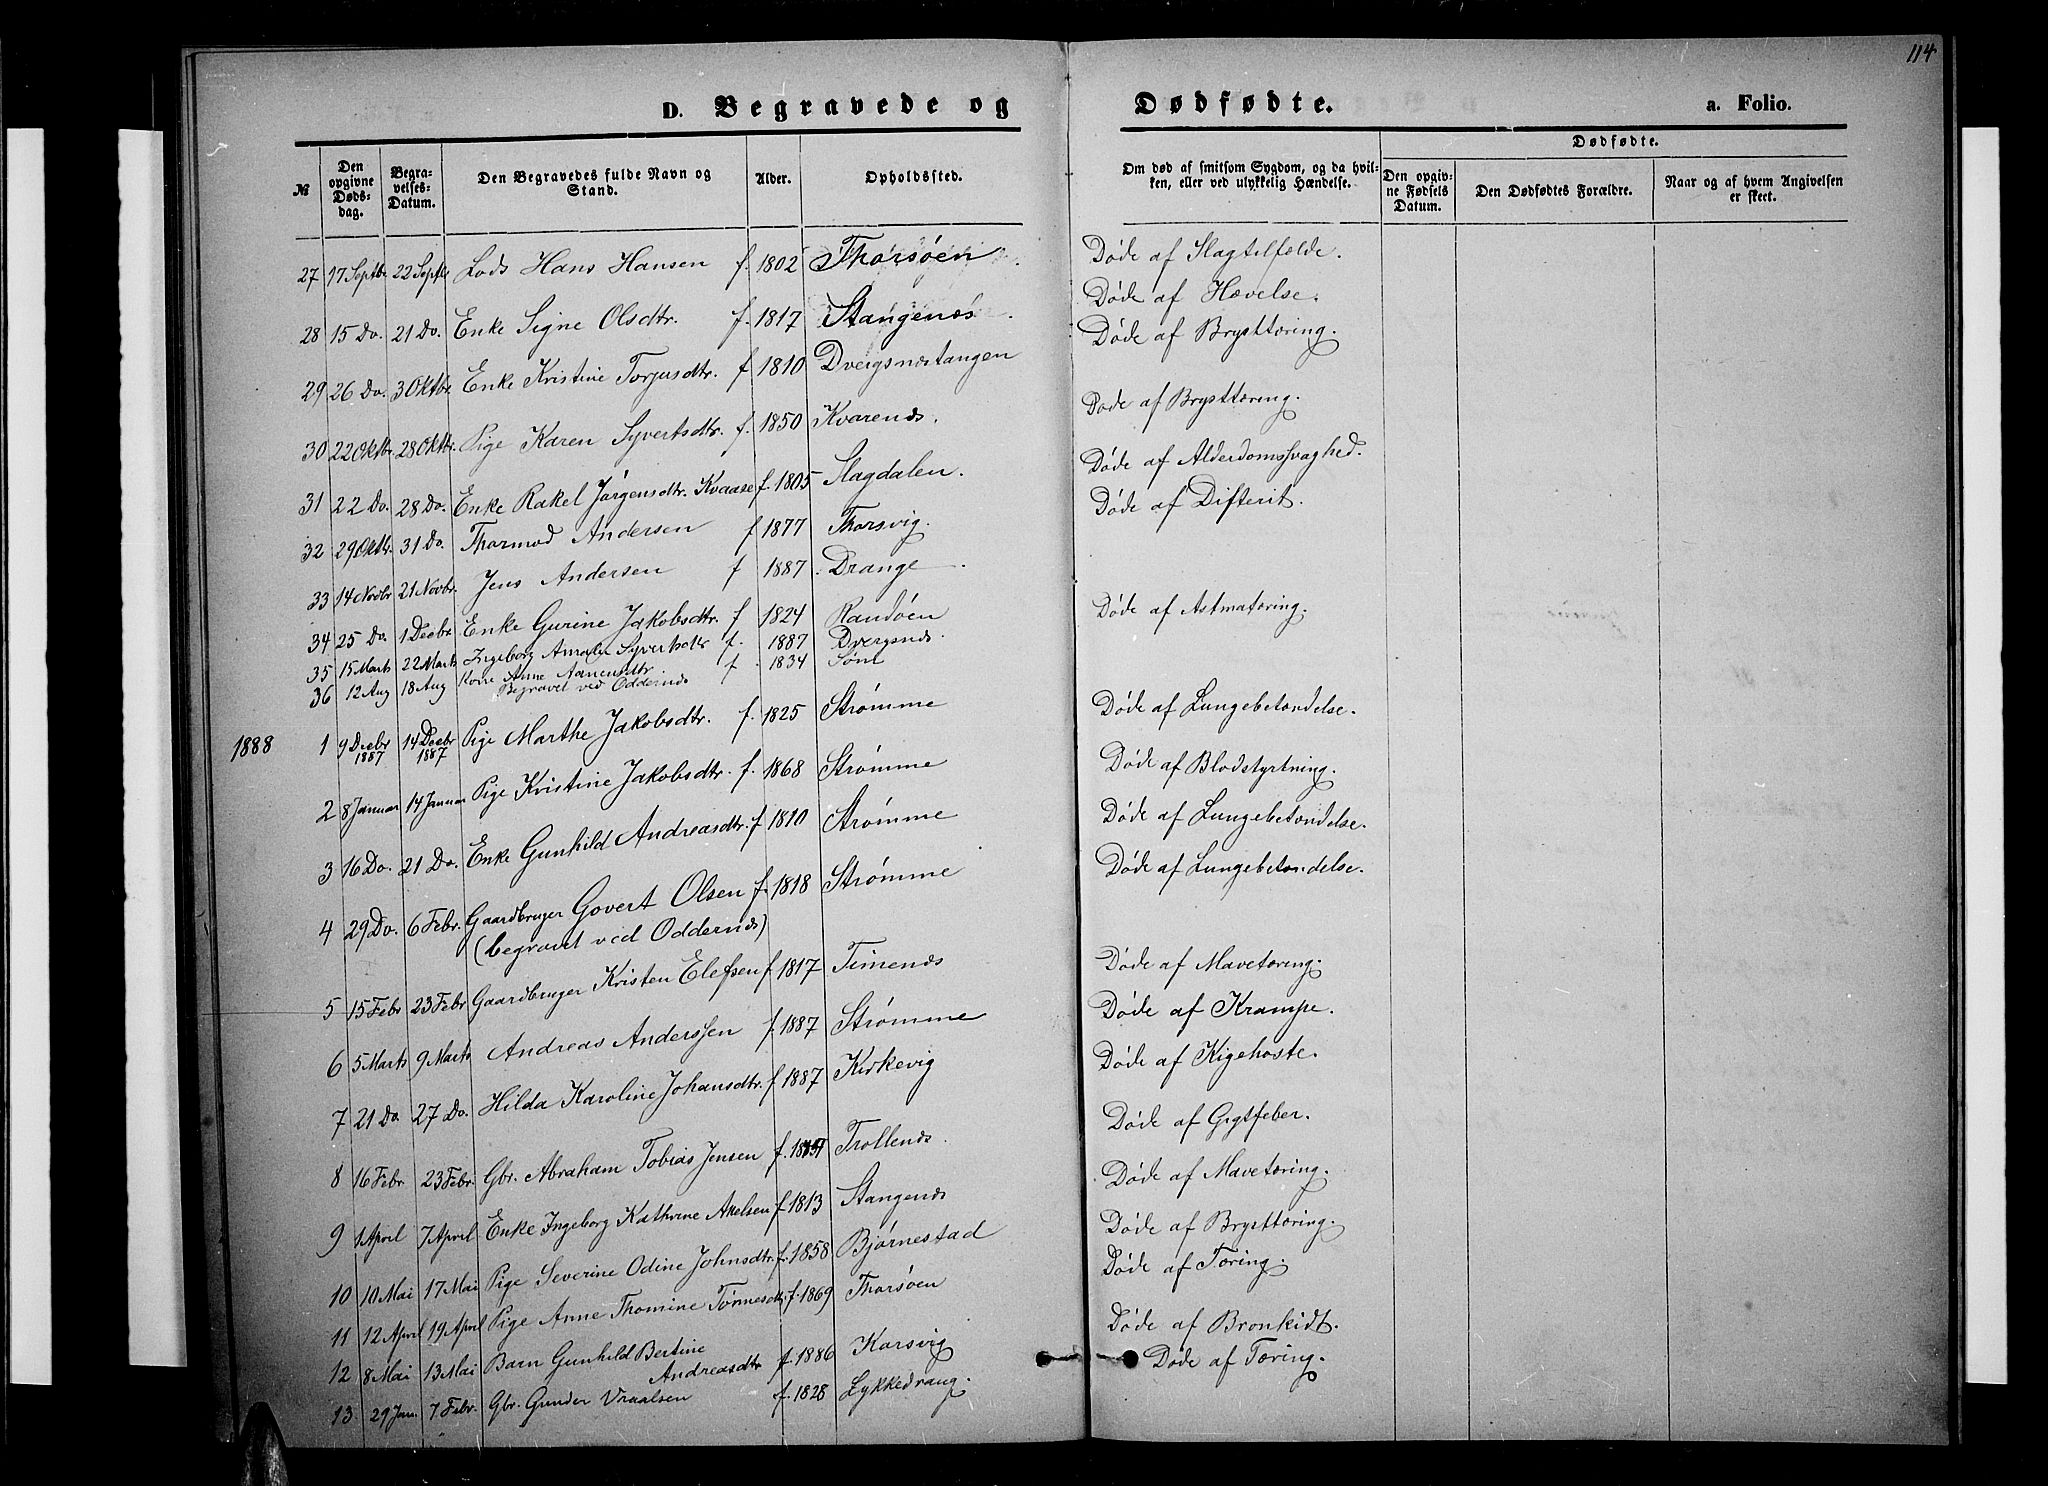 114
D. Begravede og Dødfødte. a. Folio.
№ Den opgivne Dødsdag. Begravelses-Datum. Den Begravedes fulde Navn og Stand. Alder. Opholdssted. Om død af smitsom Sygdom, og da hvilken, eller ved ulykkelig Hændelse. Dødfødte. Den opgivne Fødsels Datum. Den Dødfødtes Forældre. Naar og af hvem Angivelsen er skeet.
27 17 Septbr 22 Septbr Lods Hans Hansen f. 1802 Thorsøen Døde af Slagtilfælde.
28 15 Do. 21 Do. Enke Signe Olsdtr. f. 1817 Stangenæs. Døde af Hævelse.
29 26 Do. 3 Oktbr. Enke Kristine Torjusdtr. f 1810 Dvergsnæstangen Døde af Brysttæring.
30 22 Oktbr. 28 Oktbr. Pige Karen Syvertsdtr. f. 1850 Kvarenæs. Døde af Brysttæring.
31 22 Do. 28 Do. Enke Rakel Jørgensdtr. Kvaase f. 1805 Slagdalen. Døde af Alderdomssvaghed.
32 29 Oktbr. 31 Do. Thormod Andersen f 1877 Thorsvig. Døde af Difterit.
33 14 Novbr 21 Novbr. Jens Andersen f 1887. Drange.
34 25 Do. 1 Decbr. Enke Gurine Jakobsdtr. f 1824 Randøen Døde af Astmatæring.
35 15 Marts 22 Marts Ingeborg Amalie Syvertsdtr f. 1887 Dvergsnæs.
36 12 Aug 18 Aug Kone Anne Aanensdtr. f. 1834 Søm
Begravet ved Oddernæs
1888 1 9 Decbr 1887 14 Decbr 1887 Pige Marthe Jakobsdtr. f. 1825 Strømme Døde af Lungebetændelse.
2 8 Januar 14 Januar Pige Kristine Jakobsdtr. f. 1868 Strømme Døde af Blodstyrtning.
3 16 Do. 21 Do. Enke Gunhild Andreasdtr. f 1810 Strømme Døde af Lungebetændelse.
4 29 Do. 6 Febr. Gaardbruger Govert Olsen f. 1818 Strømme Døde af Lungebetændelse.
(begravet ved Oddernæs)
5 15 Febr 23 Febr Gaardbruger Kristen Elefsen f 1817 Timenæs Døde af Mavetæring.
6 5 Marts 9 Marts Andreas Anderssen f. 1887 Strømme Døde af Krampe.
7 21 Do. 27 Do. Hilda Karoline Johansdtr. f 1887 Kirkevig Døde af Kigehoste.
8 16 Febr 23 Febr. Gbr. Abraham Tobias Jensen f. Trollenæs. Døde af Gigtfeber.
9 1 April 7 April Enke Ingeborg Kathrine Akelsen f 1813 Stangenæs Døde af Mavetæring.
10 10 Mai 17 Mai Pige Severine Odine Johnsdtr. f. 1858 Bjørnestad Døde af Brysttæring.
11 12 April 19 April Pige Anne Thomine Tønnesdtr f. 1869 Thorsøen Døde af Tæring.
12 8 Mai 13 Mai Barn Gunhild Bertine Andreasdtr f. 1886 Korsvig Døde af Bronkidt.
13 29 Jan. 7. Febr. Gbr. Gunder Vraalsen f. 1828 Lykkedrang. Døde af Tæring.